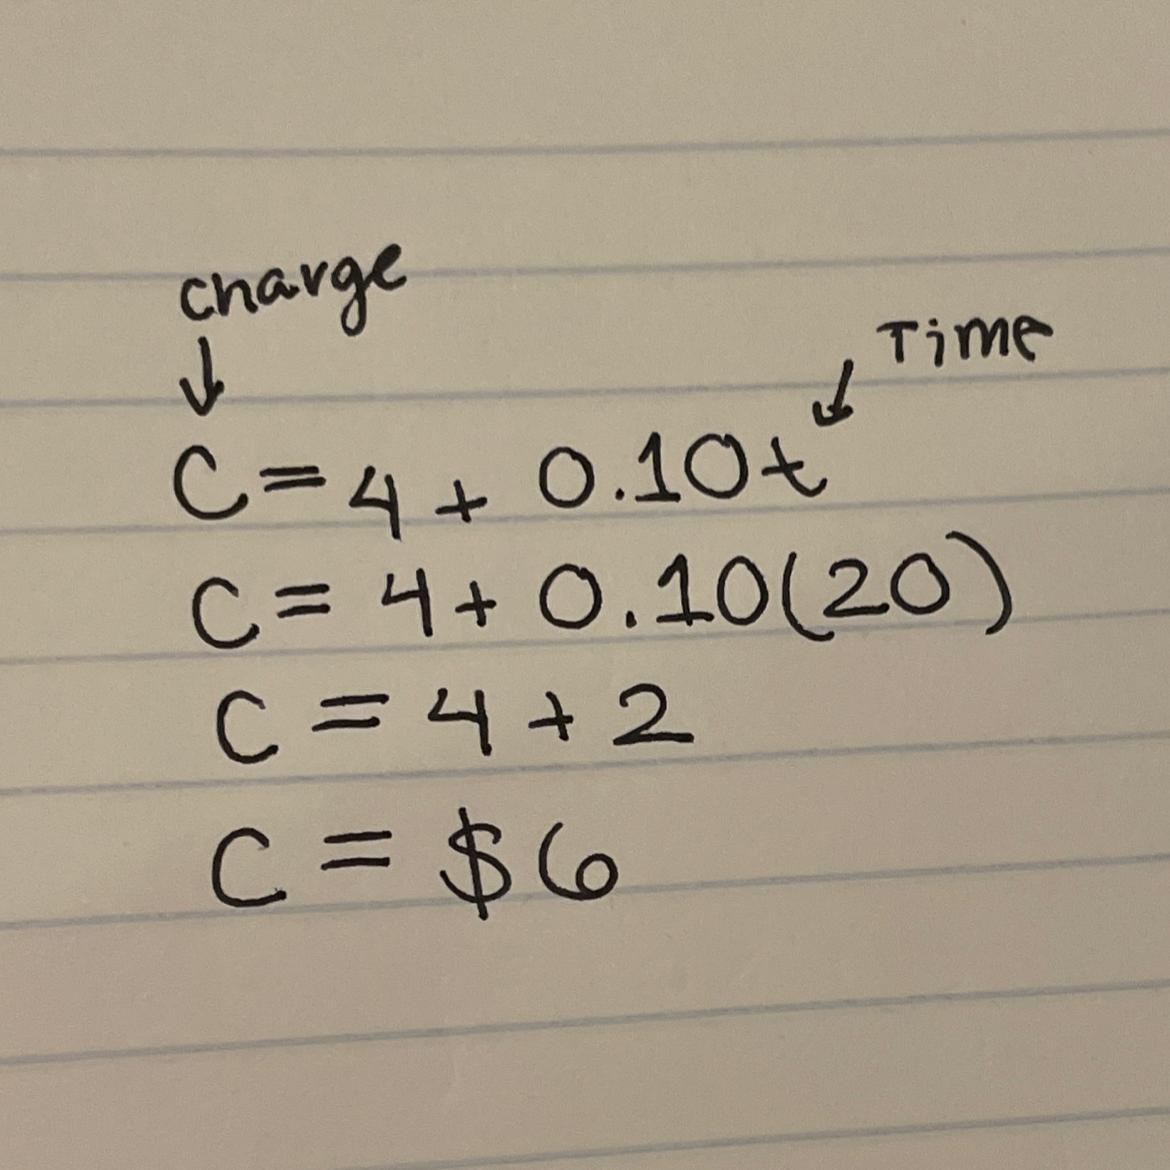 charge
Time
C = 4 + 0.10t
C = 4 + 0.10(20)
C = 4 + 2
C = $6